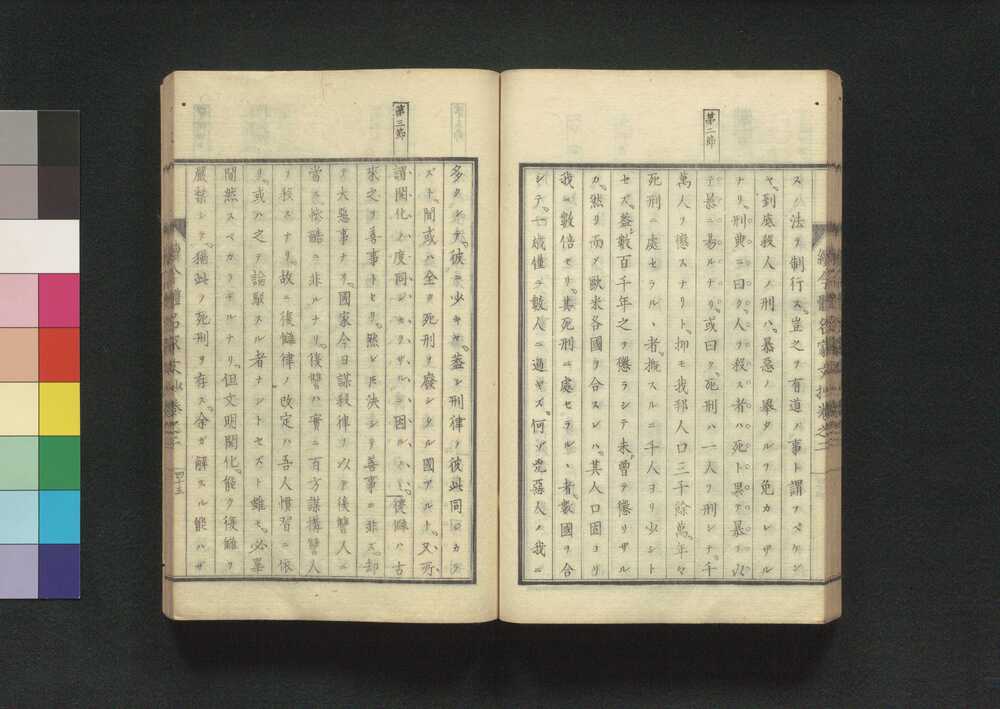 第二節
ス、法ヲ制行ス、豈之ヲ有道ノ事ト謂フベケン
ヤ、到底殺人ノ刑ハ、暴惡ノ擧タルヲ免カレザル
ナリ、刑典ニ曰ク、人ヲ殺ス者ハ死ト、異テ暴ヲ以
テ暴ニ易ルナリ、或曰ク、死刑ハ一人ヲ刑シテ、千
萬人ヲ懲スナリト、抑モ我邦人口三千餘萬、年々
死刑ニ處セラルヽ者、概スルニ千人ヨリ少シト
セズ、蓋數百千年之ヲ懲ラシテ未曾テ懲リザル
カ、然リ而メ歐米各國ヲ合スレハ、其人口固ヨリ
我ニ數倍セリ、其死刑ニ處セラルヽ者、數國ヲ合
シテ、一歳僅ニ數人ニ過ギズ、何ソ兇惡人ノ我ニ
第三節
多クシテ、彼ニ少キヤ、蓋シ刑律ノ彼此同シカラ
ズト、間或ハ全ク死刑ヲ廢シタル國アルト、又所
謂開化ノ度同シカラザルニ因ルノミ、復讐ハ古
來之ヲ善事トセリ、然レ𪜈決シテ善事ニ非ズ、却
テ大惡事ナリ、國家今日謀殺律ヲ以テ復讐人ニ
當ル、惨酷ニ非ルナリ、復讐ハ實ニ百方謀搆讐人
ヲ殺スナリ、故ニ復讐律ノ改定ハ吾人慣習ニ依
リ、或ハ之テ論駁スル者ナシトセズト雖モ、必畢
間然スベカラザルナリ、但文明開化、能ク復讐ヲ
嚴禁シテ、猶此ノ死刑ヲ存ス、余ガ解スル能ハザ
四十五